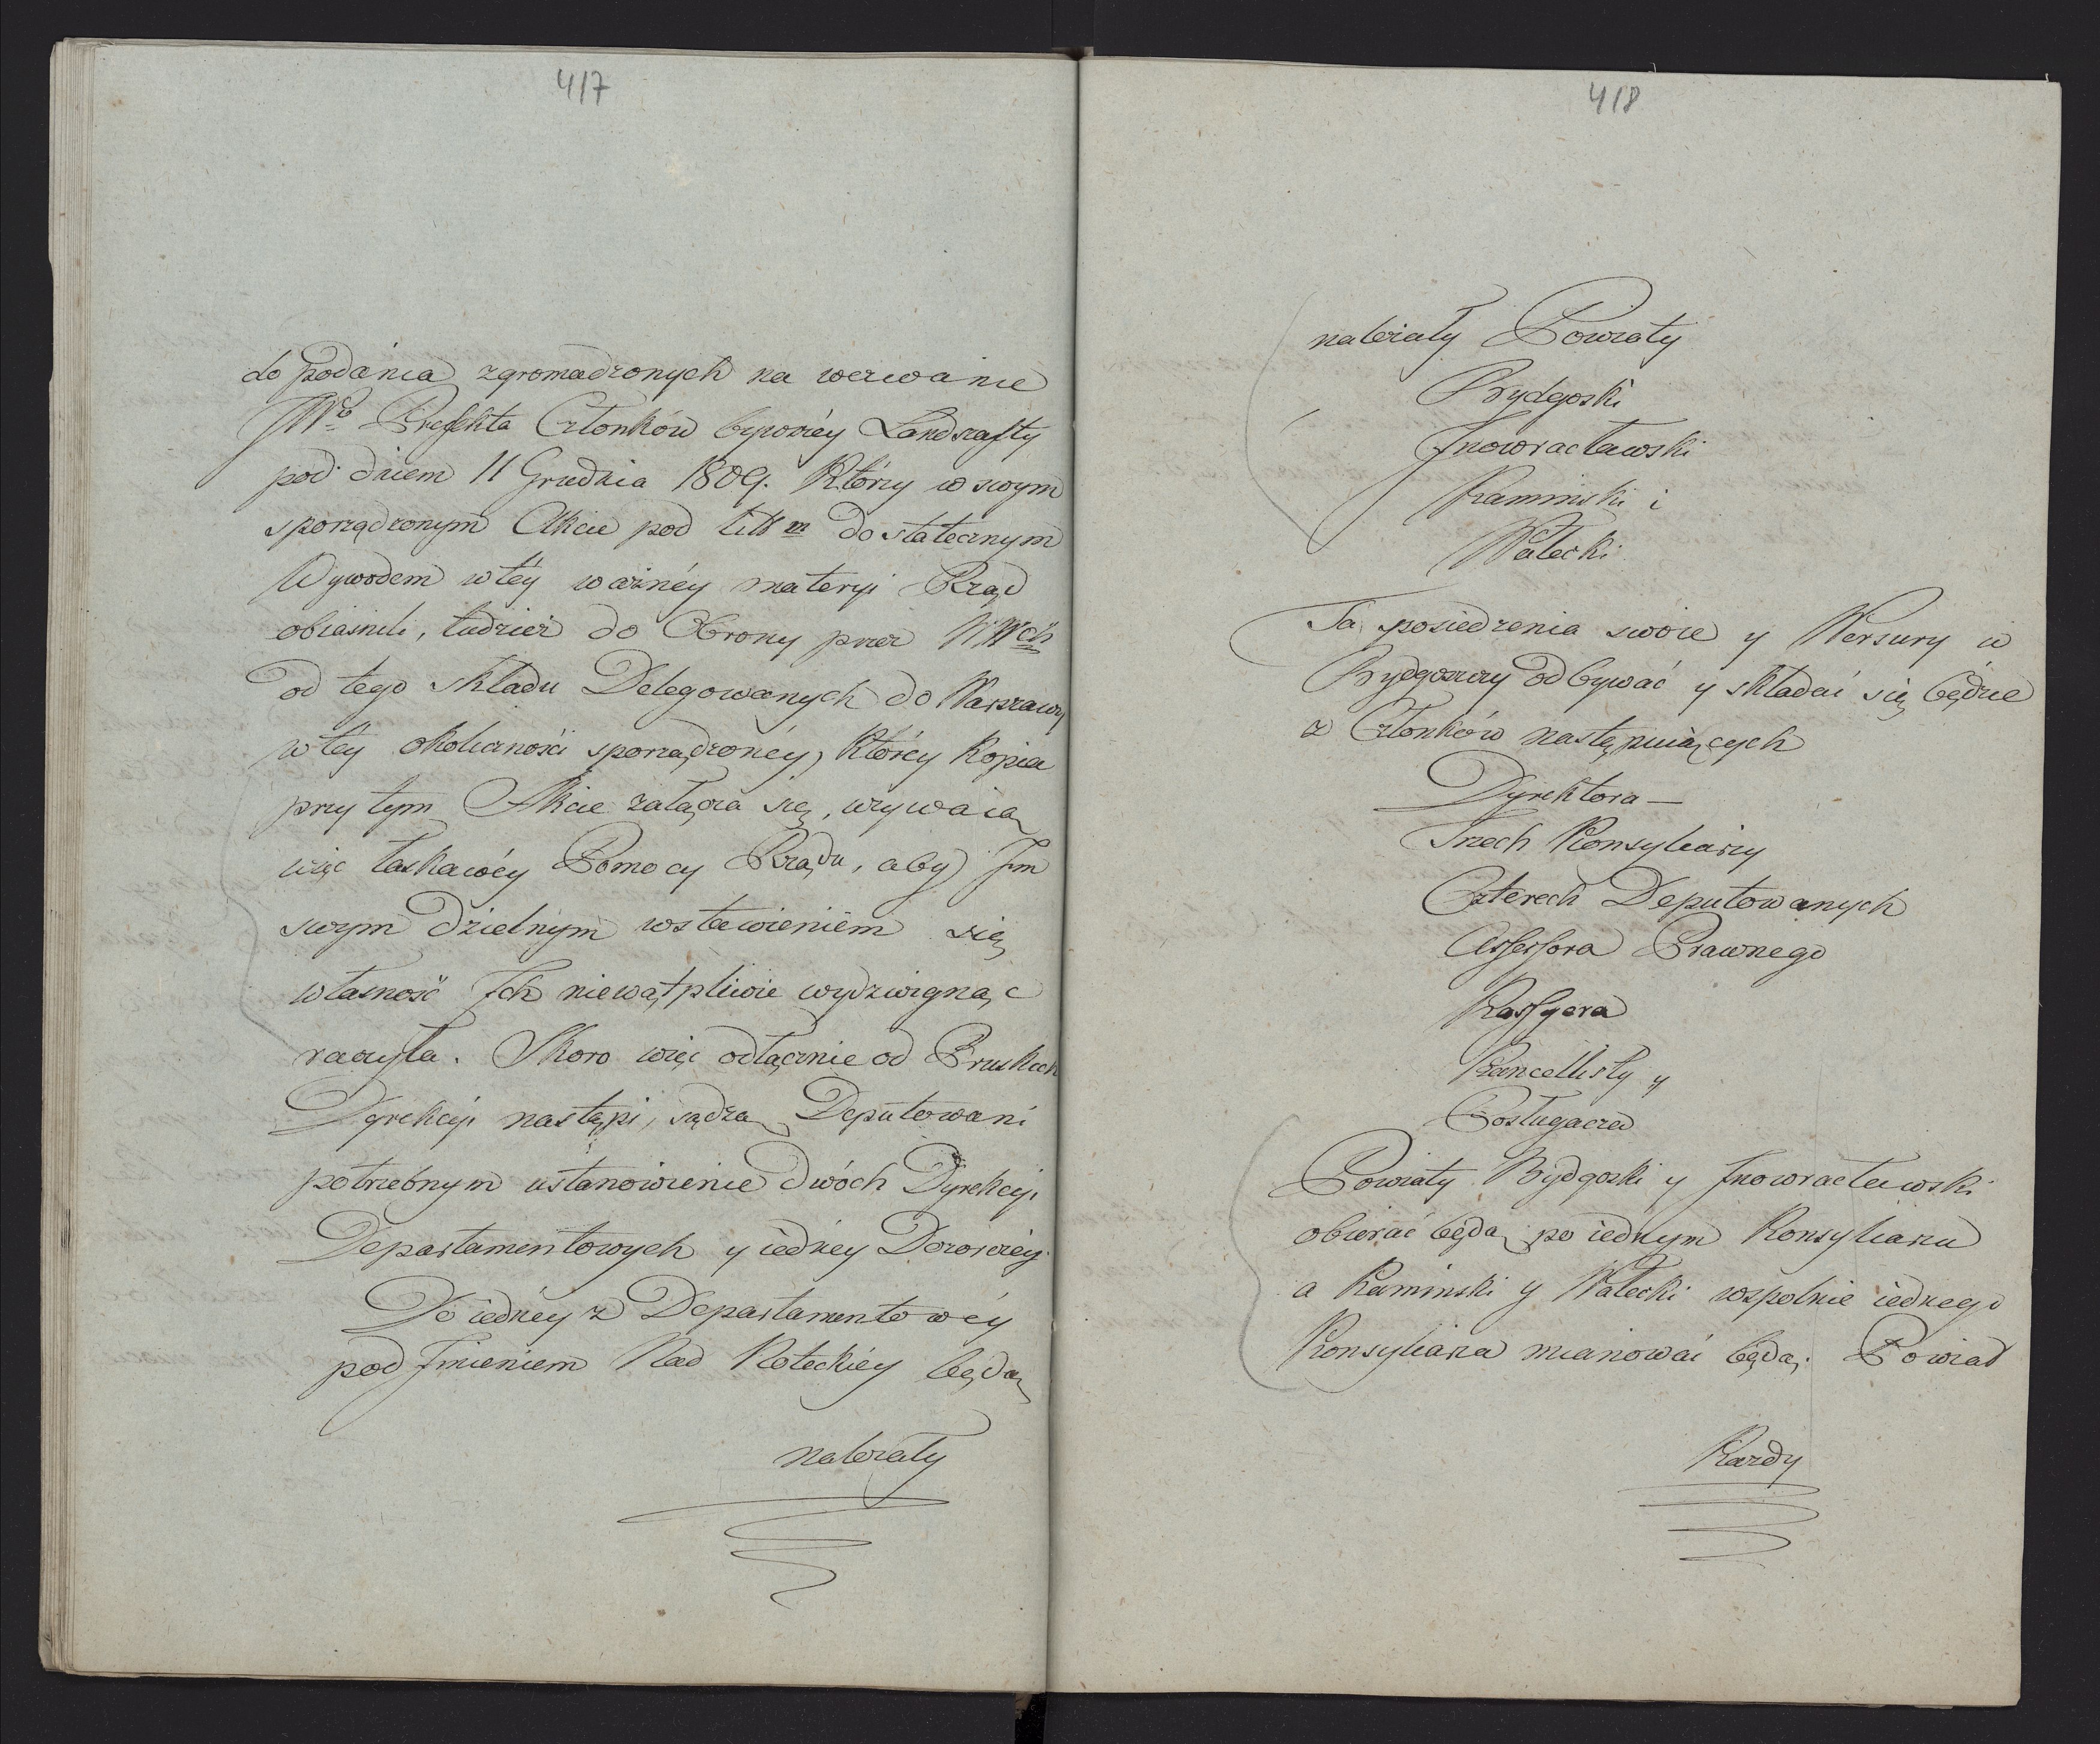 417
do podania zgromadzonych na wezwanie
JW<sup>o</sup> Prefekta Członków bywszéy Landszafty
pod dniem 11 Grudnia 1809. Którzy w swym
sporządzonym Akcie pod titt m dostatecznym
Wywodem w téy ważnéy materyi Rząd
obiaśnili, tudzież do Obrony przez WWch
od tego składu Delegowanych do Warszawy
w téy okoliczności sporządzonéy, którey kopia
przy tym Akcie załącza się, wzywaią
więc łaskawéy Pomocy Rządu, aby Im
swym dzielnym wstawieniem się
własność Ich niewątpliwie wydzwignąć
raczyła. Skoro więc odłącznie od Pruskich
Dyrekcyi nastąpi, sądzą Deputowani
potrzebnym ustanowienie dwóch Dyrekcyi
Departamentowych y iednéy Dozorczéy.
Do iednéy z Departamentowéy
pod Imieniem Nad Noteckiéy będą
należały
418
należały Powiaty
Bydgoski
Inowracławski
Kaminski i
Wałecki
Ta posiedzenia swoie y Wersury w
Bydgoszczy odbywać y składać się będzie
z Członków następuiących
Dyrektora —
Trzech Konsyliarzy
Czterech Deputowanych
Assessora Prawnego
Kassyera
Kancellisty y
Posługacza
Powiaty Bydgoski y Inowracławski
obierać będą po iednym Konsyliarzu
a Kaminski y Wałecki wspolnie iednego
Konsyliarza mianować będą. Powiat
Każdy